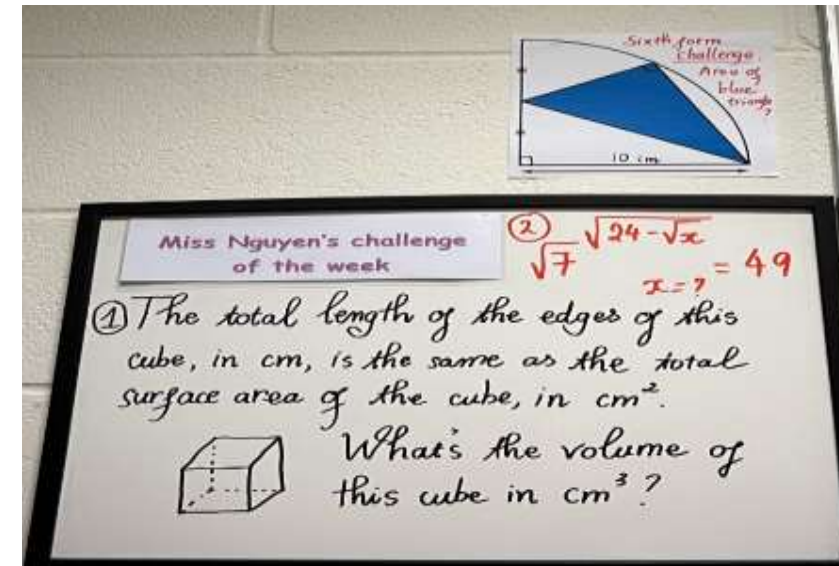 Sixth form
challenge.
Area of
blue
triangle
?
10 cm
Miss Nguyen's challenge
of the week
② √7^√(24-√x) = 49
x = ?
① The total length of the edges of this
cube, in cm, is the same as the total
surface area of the cube, in cm².
What's the volume of
this cube in cm³?